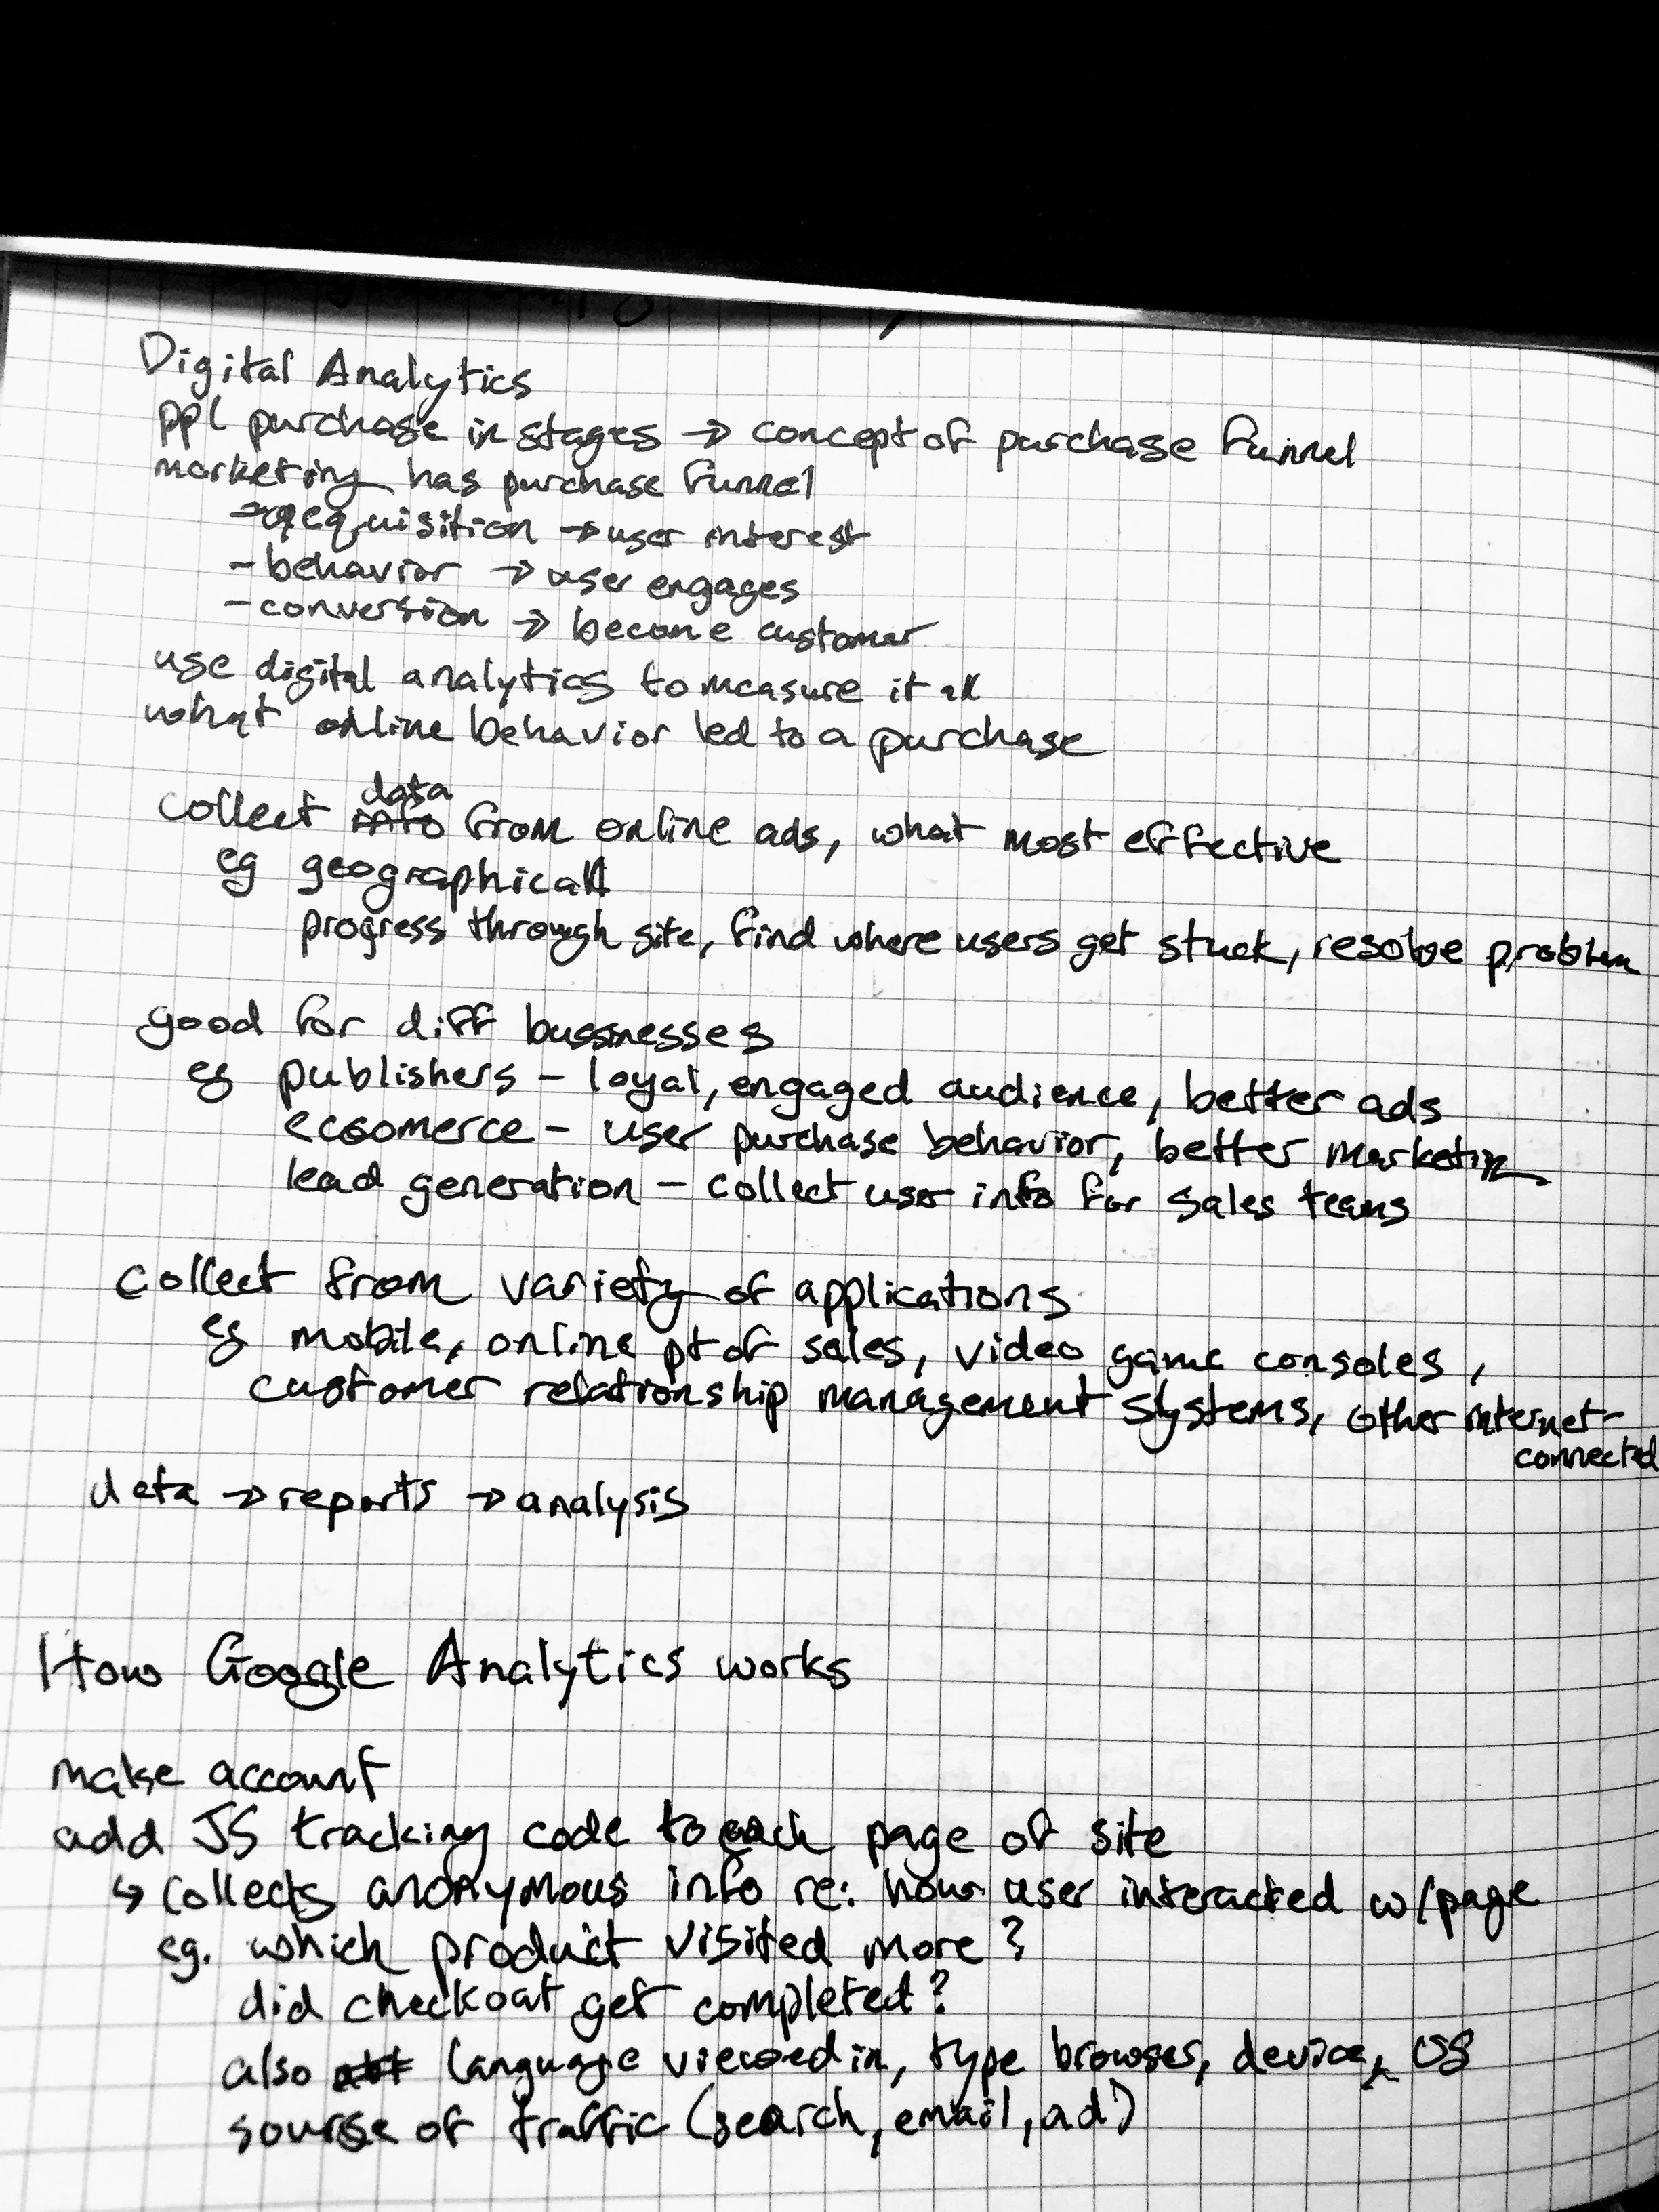 Digital Analytics
ppl purchase in stages → concept of purchase funnel
marketing has purchase funnel
- aqequisition → user interest
- behavior → user engages
- conversion → become customer
use digital analytics to measure it all
what online behavior led to a purchase
data
collect info from online ads, what most effective
eg geographical
progress through site, find where users get stuck, resolve problem
good for diff bussinesses
eg publishers - loyal, engaged audience, better ads
ecoomerce - user purchase behavior, better marketing
lead generation - collect user info for sales teams
collect from variety of applications
eg mobile, online pt of sales, video game consoles,
customer relationship management systems, other internet-
connected
data → reports → analysis
How Google Analytics works
make account
add JS tracking code to each page of site
↳ collects anonymous info re: how user interacted w/page
eg. which product visited more?
did checkout get completed?
also language viewed in, type browser, device, OS
source of traffic (search, email, ad)